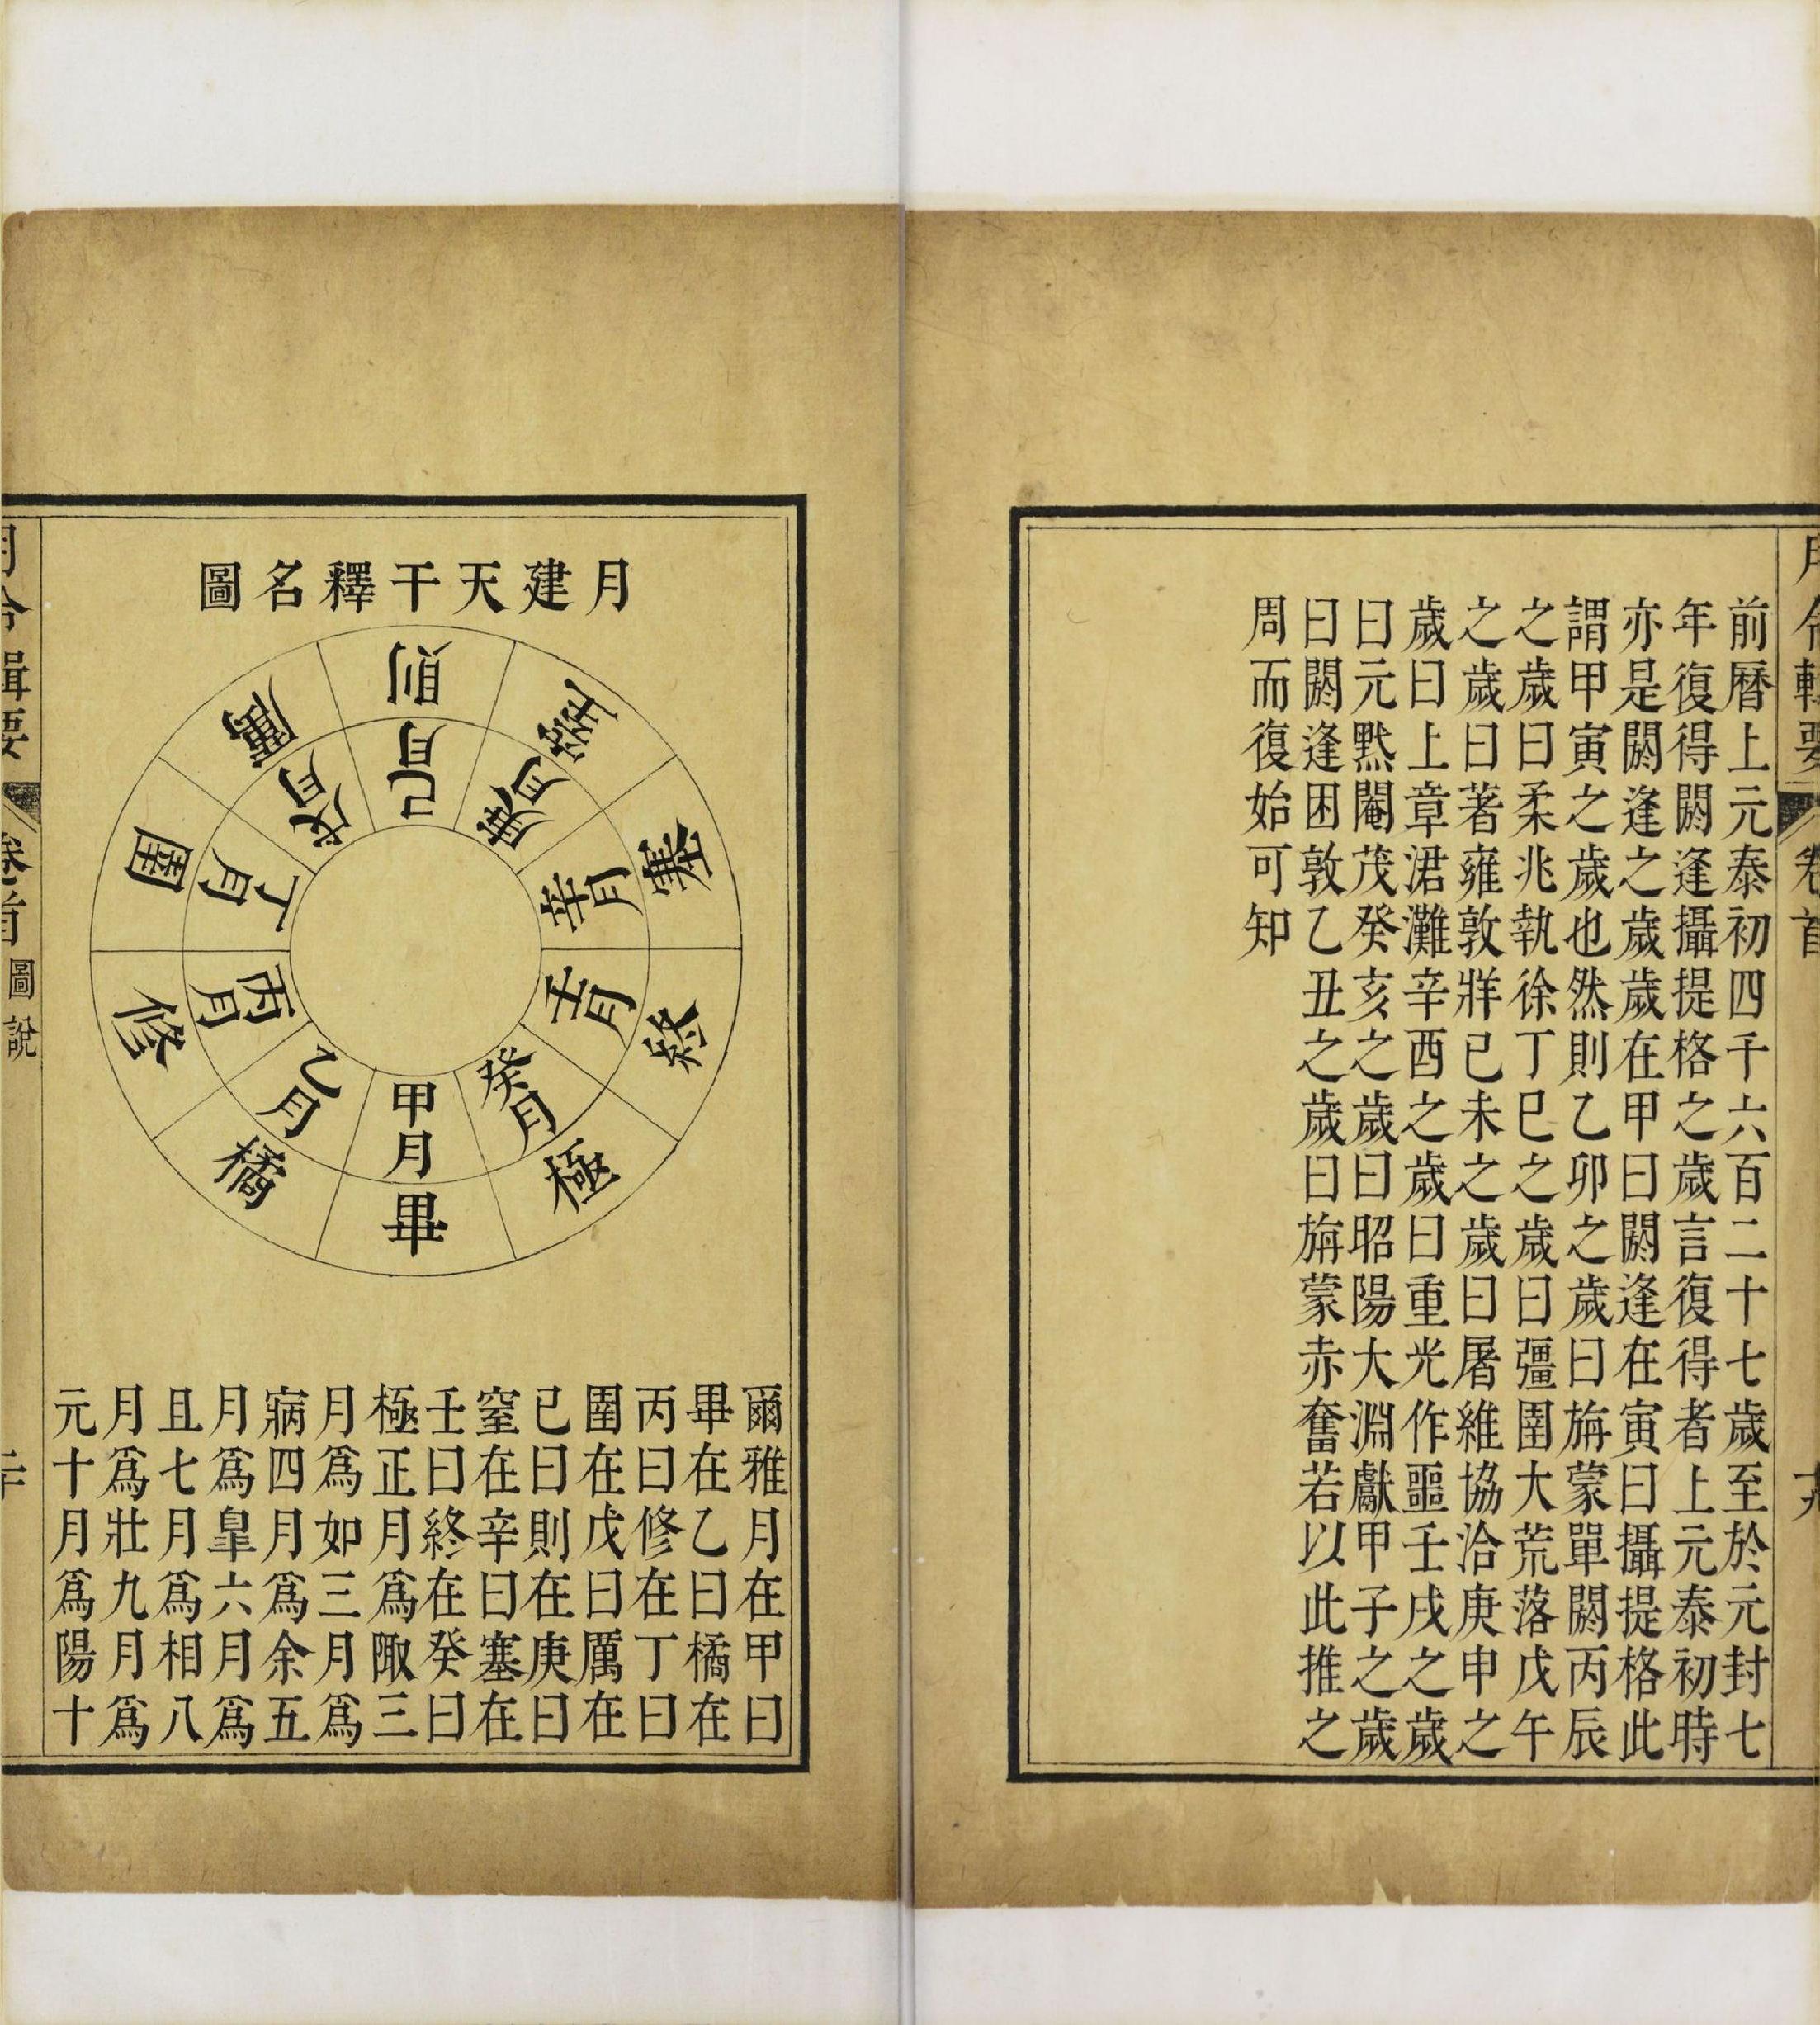 月令輯要
卷首
十九
前曆上元泰初四千六百二十七歲至於元封七
年復得閼逢攝提格之歲言復得者上元泰初時
亦是閼逢之歲歲在甲曰閼逢在寅曰攝提格此
謂甲寅之歲也然則乙卯之歲曰旃蒙單閼丙辰
之歲曰柔兆執徐丁巳之歲曰彊圉大荒落戊午
之歲曰著雍敦牂己未之歲曰屠維協洽庚申之
歲曰上章涒灘辛酉之歲曰重光作噩壬戌之歲
曰元黓閹茂癸亥之歲曰昭陽大淵獻甲子之歲
曰閼逢困敦乙丑之歲曰旃蒙赤奮若以此推之
周而復始可知
月建天干釋名圖
甲月
畢
乙月
橘
丙月
修
丁月
圉
戊月
厲
己月
則
庚月
窒
辛月
塞
壬月
終
癸月
極
爾雅月在甲曰
畢在乙曰橘在
丙曰修在丁曰
圉在戊曰厲在
己曰則在庚曰
窒在辛曰塞在
壬曰終在癸曰
極正月爲陬三
月爲如三月爲
寎四月爲余五
月爲皐六月爲
且七月爲相八
月爲壯九月爲
元十月爲陽十
月令輯要
卷首
圖說
二十